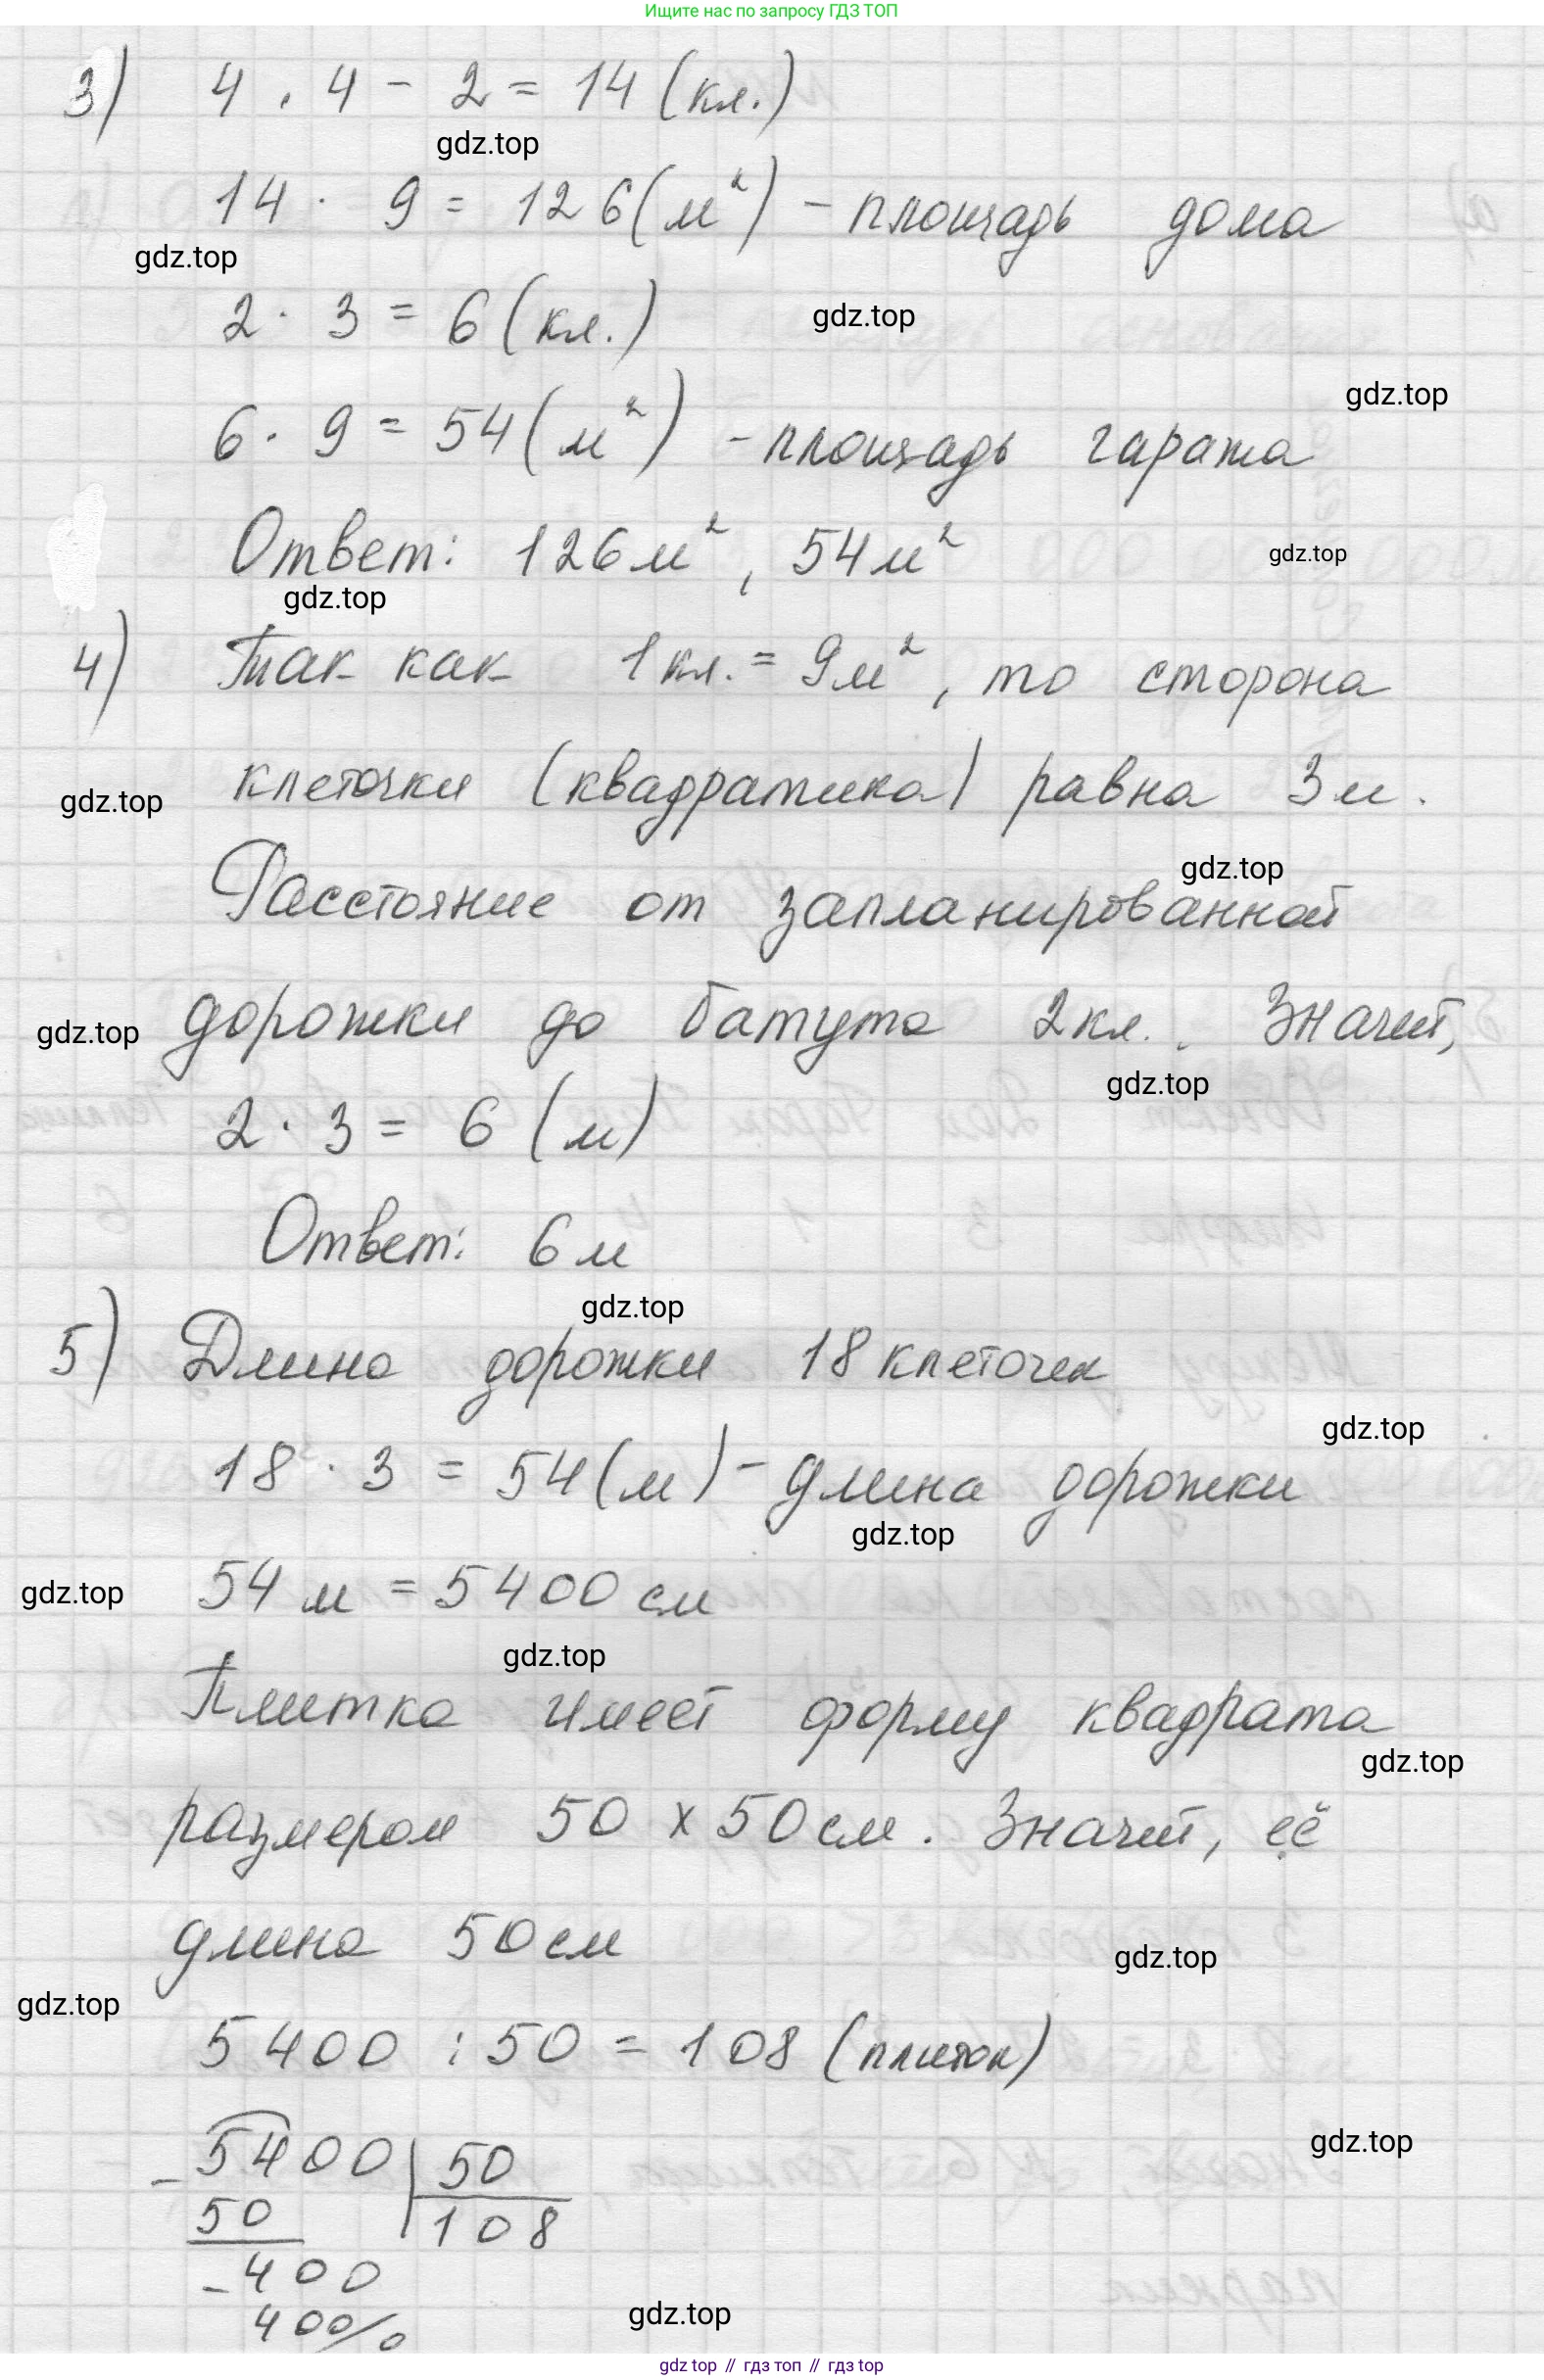 Ищите нас по запросу ГДЗ ТОП
3) 4 · 4 - 2 = 14 (кл.)
gdz.top
14 · 9 = 126 (м²) - площадь дома
gdz.top
2 · 3 = 6 (кл.)
gdz.top
gdz.top
6 · 9 = 54 (м²) - площадь гаража
Ответ: 126 м², 54 м²
gdz.top
gdz.top
4) Так как 1 кл. = 9 м², то сторона
клеточки (квадратика) равна 3 м.
gdz.top
gdz.top
Расстояние от запланированной
дорожки до батута 2 кл. Значит,
gdz.top
gdz.top
2 · 3 = 6 (м)
Ответ: 6 м
gdz.top
5) Длина дорожки 18 клеточек
gdz.top
18 · 3 = 54 (м) - длина дорожки
gdz.top
54 м = 5400 см
gdz.top
gdz.top
Плитка имеет форму квадрата
gdz.top
размером 50 x 50 см. Значит, её
длина 50 см
gdz.top
gdz.top
5400 : 50 = 108 (плиток)
gdz.top
5400 | 50
- 50 108
- 400
400
0
gdz.top
gdz top // гдз топ // gdz top